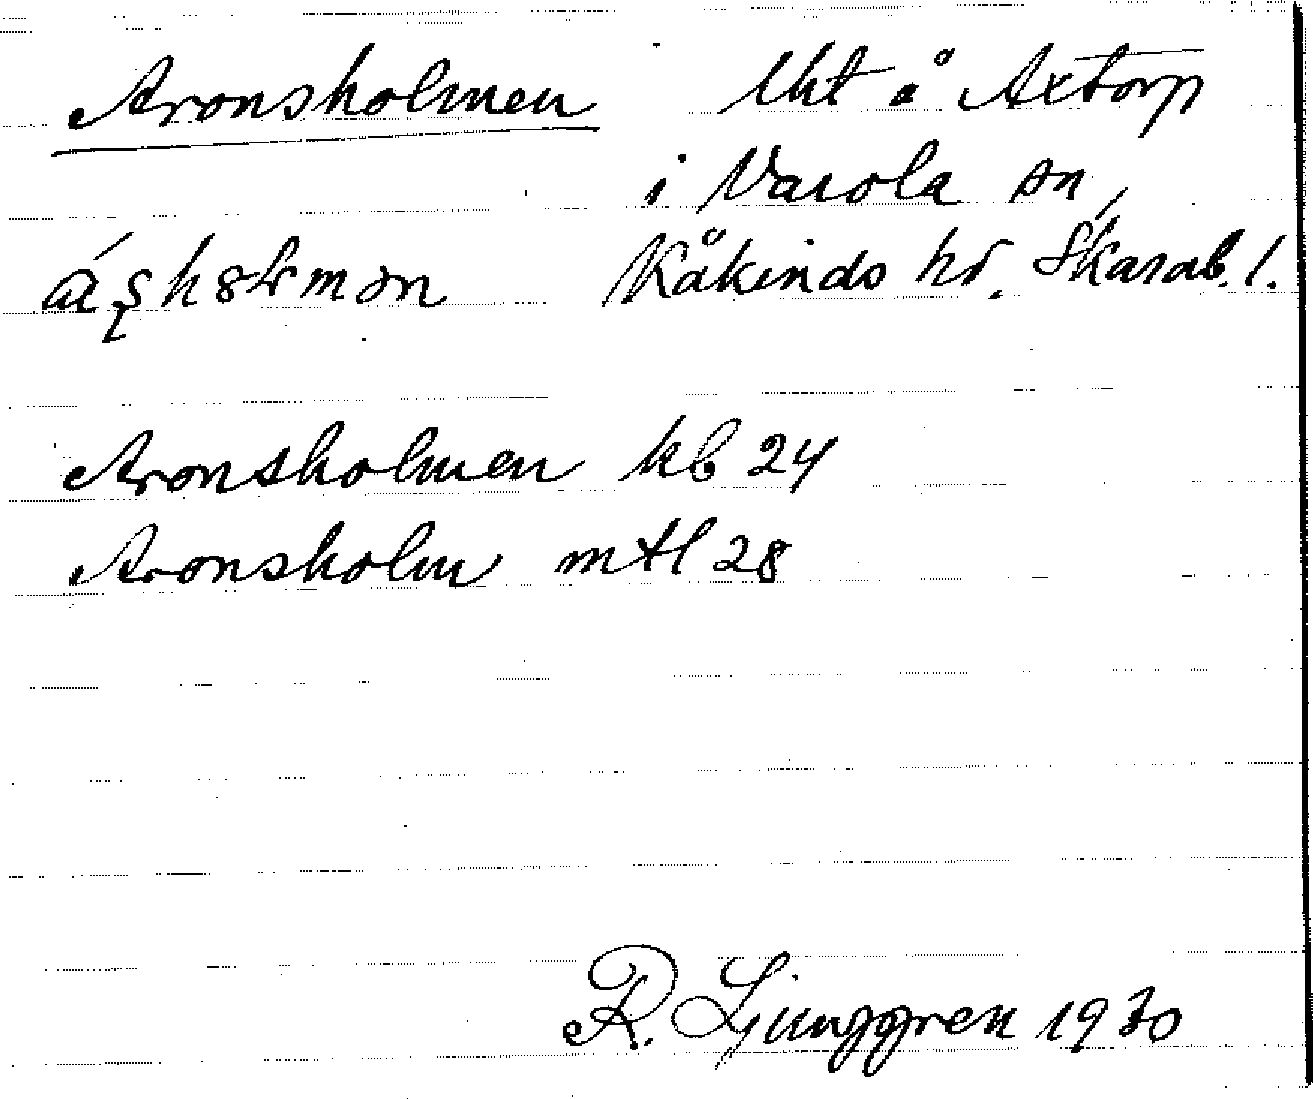 Aronsholmen lht å Axtorp
i Varola sn,
Kåkinds hd. Skarab. l.
Aronsholmen kb 24
Aronsholm mtl 28
R. Ljunggren 1930